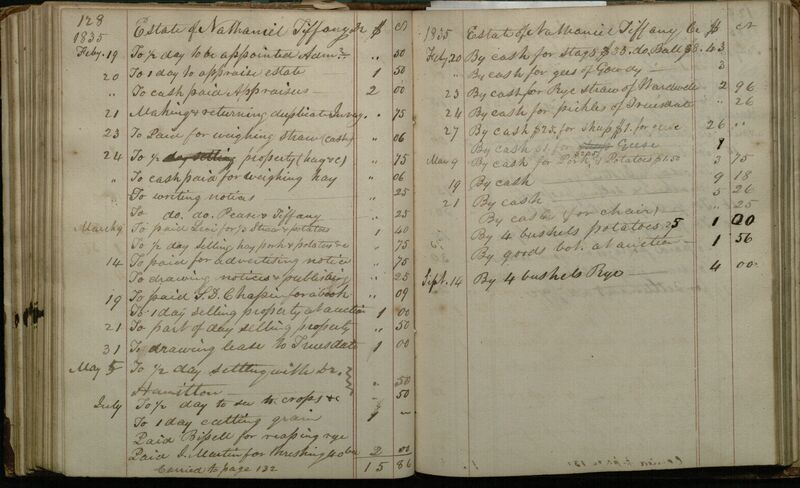 128
1835 Estate of Nathaniel Tiffany Dr $ cr
Feby. 19 To 1/2 day to be appointed Admr. " 50
20 To 1 day to appraise estate 1 50
" To cash paid Appraisers 2 00
21 Making & returning duplicate Invoy. " 75
23 To Paid for weighing straw (cash) " 06
24 To 1/2 day selling property (hay &c) " 75
" To cash paid for weighing hay " 06
" To writing notices " 25
To do. do. Pease & Tiffany " 25
March 9 To paid Levi for 1/2 straw & potatoes 1 40
To 1/2 day selling hay pork & potatoes &c " 75
14 To paid for advertising notice " 75
To drawing notices & publishing " 25
19 To paid S.D. Chapin for a book " 09
To 1 day selling property at auction 1 00
21 To part of day selling property " 50
31 To drawing lease to Truesdale 1 00
May 5 To 1/2 day settling with Dr.
Hamilton " 50
July To 1/2 day to see to crops &c - 50
To 1 day cutting grain 1 -
Paid Bissell for reaping rye
Paid J. Martin for threshing & do 2 00
Carried to page 132 15 86
1835 Estate of Nathaniel Tiffany Cr $ cr
Feby. 20 By cash for stag $35. do. Ball $8. 43
" By cash for gees of Gowdy 3
23 By cash for Rye straw of Wardwell 2 96
24 By cash for pickles of Truesdale " 26
27 By cash $25. for sheep $1. for geese 26 "
By cash $1. for Geese 1
Mar 9 By cash for Pork & Potatoes $1.50 3 75
19 By cash 9 18
21 By cash 5 26
By cash (for chair) " 25
By 4 bushels potatoes 25 1 00
By goods bot. at auction 1 56
Sept. 14 By 4 bushels Rye 4 00